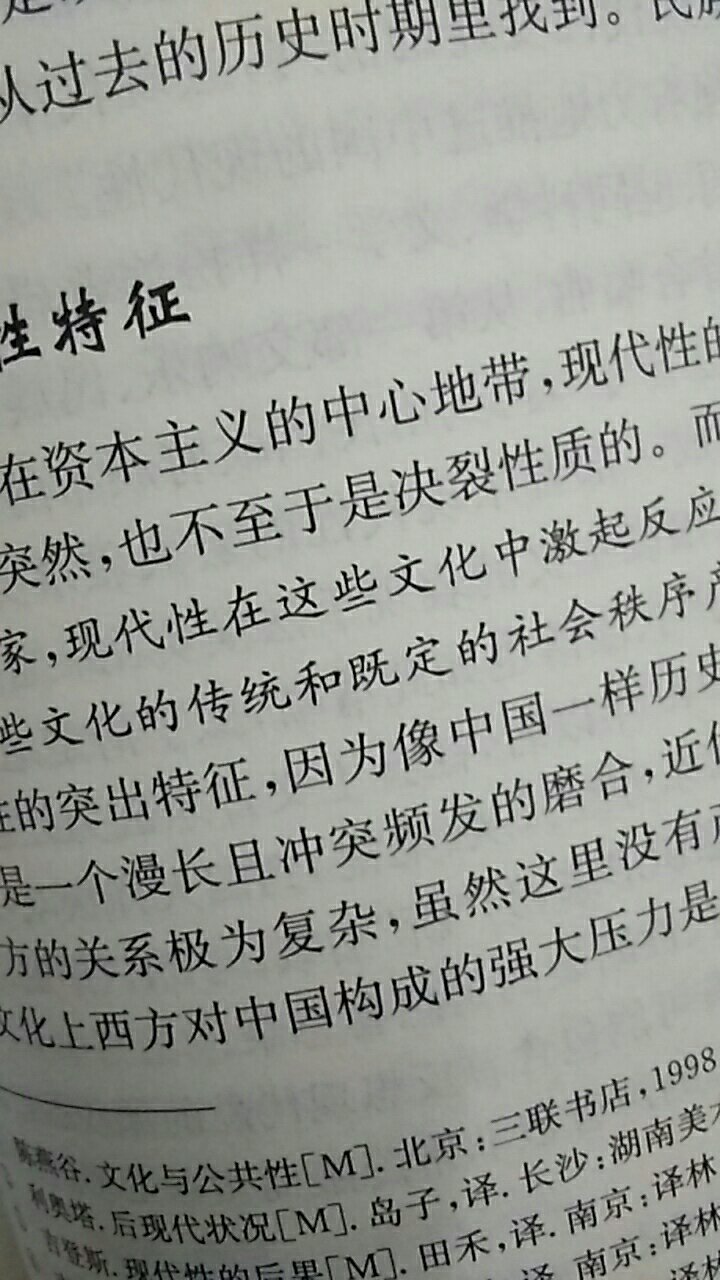 从过去的历史时期里找到。民族
性特征
在资本主义的中心地带，现代性的
突然，也不至于是决裂性质的。而
家，现代性在这些文化中激起反应
些文化的传统和既定的社会秩序产
性的突出特征，因为像中国一样历史
是一个漫长且冲突频发的磨合，近代
方的关系极为复杂，虽然这里没有
文化上西方对中国构成的强大压力是
陈燕谷.文化与公共性[M].北京：三联书店，1998
利奥塔.后现代状况[M].岛子，译.长沙：湖南美术
吉登斯.现代性的后果[M].田禾，译.南京：译林
译.南京：译林